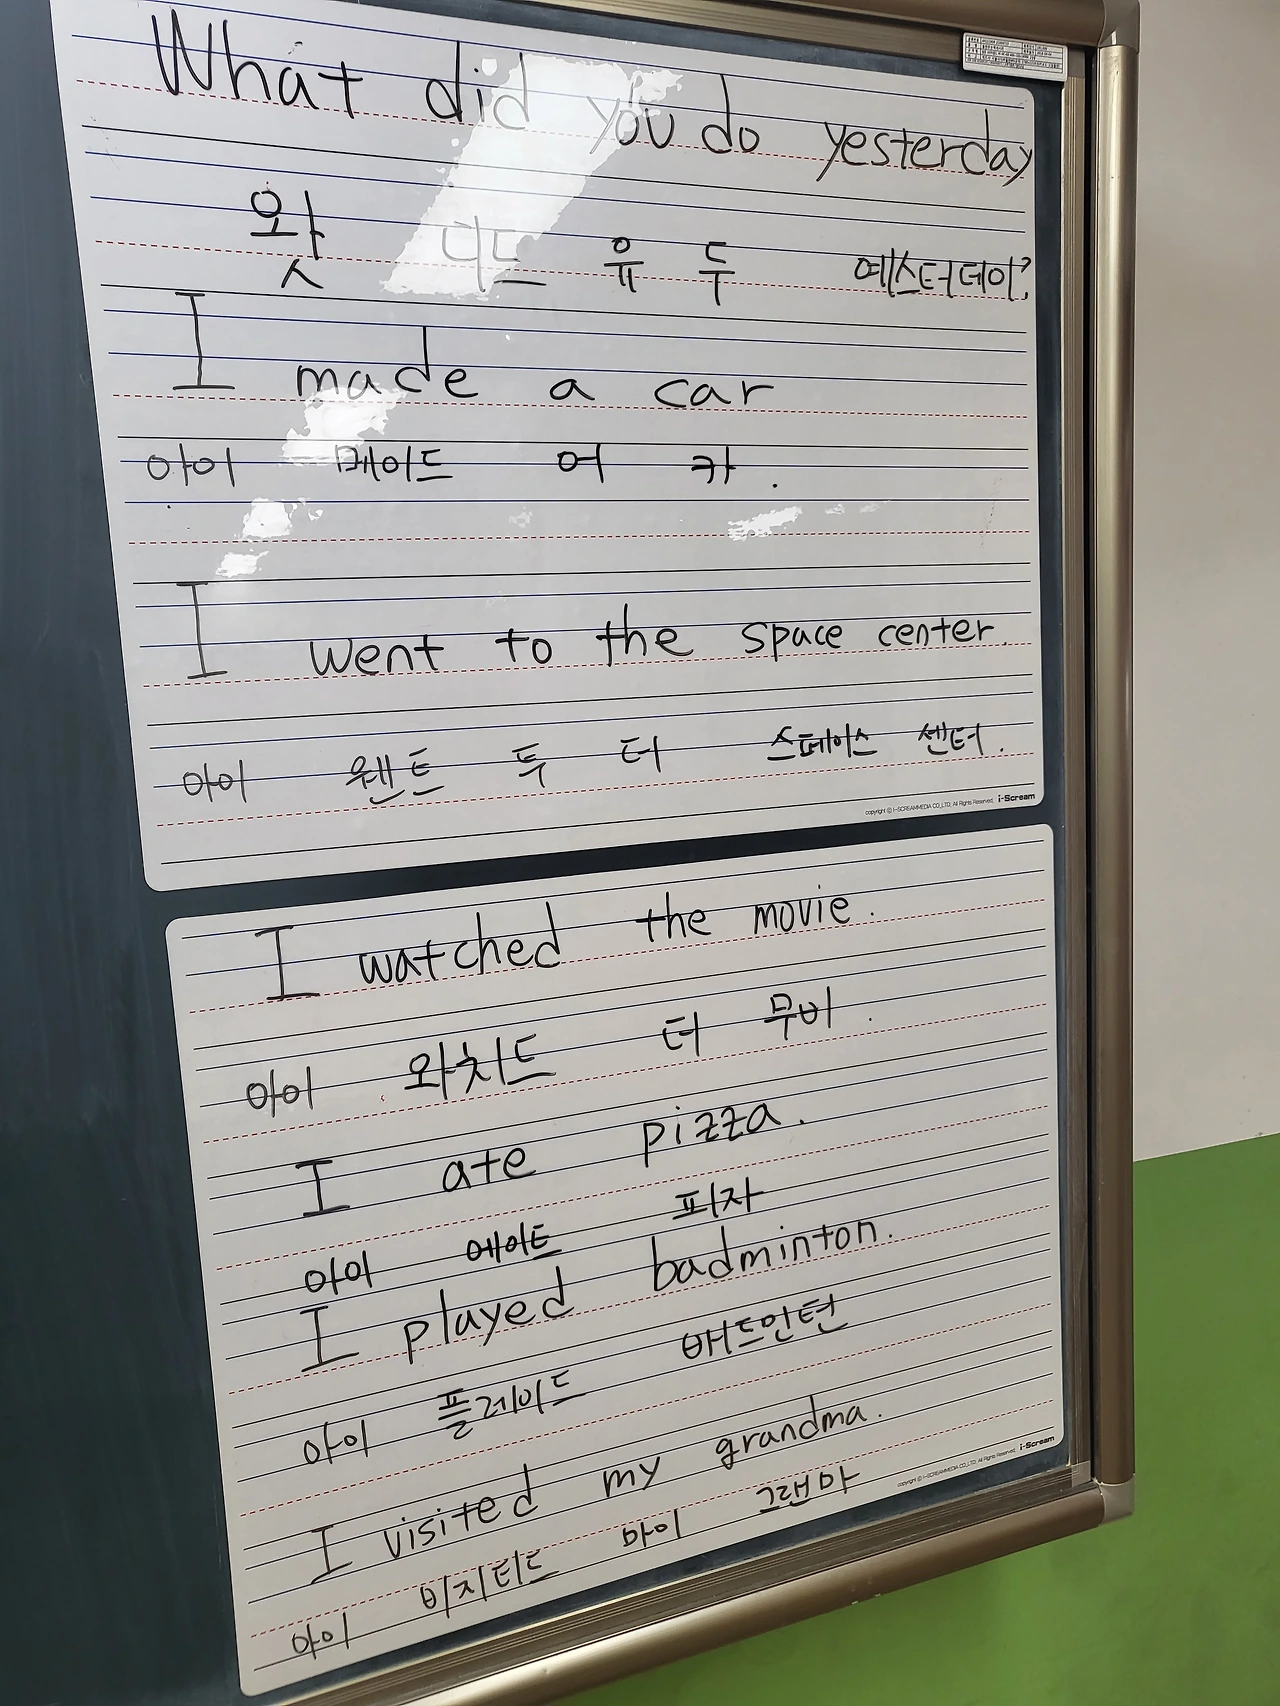 What did you do yesterday
왓 디드 유 두 예스터데이?
I made a car
아이 메이드 어 카.
I went to the space center.
아이 웬트 투 터 스페이스 센터.
copyright ⓒ i-SCREAMMEDIA CO.,LTD. All Rights Reserved. i-Scream
I watched the movie.
아이 와치드 터 무비.
I ate pizza.
아이 에이트 피자
I played badminton.
아이 플레이드 배드민턴
I visited my grandma.
copyright ⓒ i-SCREAMMEDIA CO.,LTD. All Rights Reserved. i-Scream
아이 비지티드 마이 그랜마